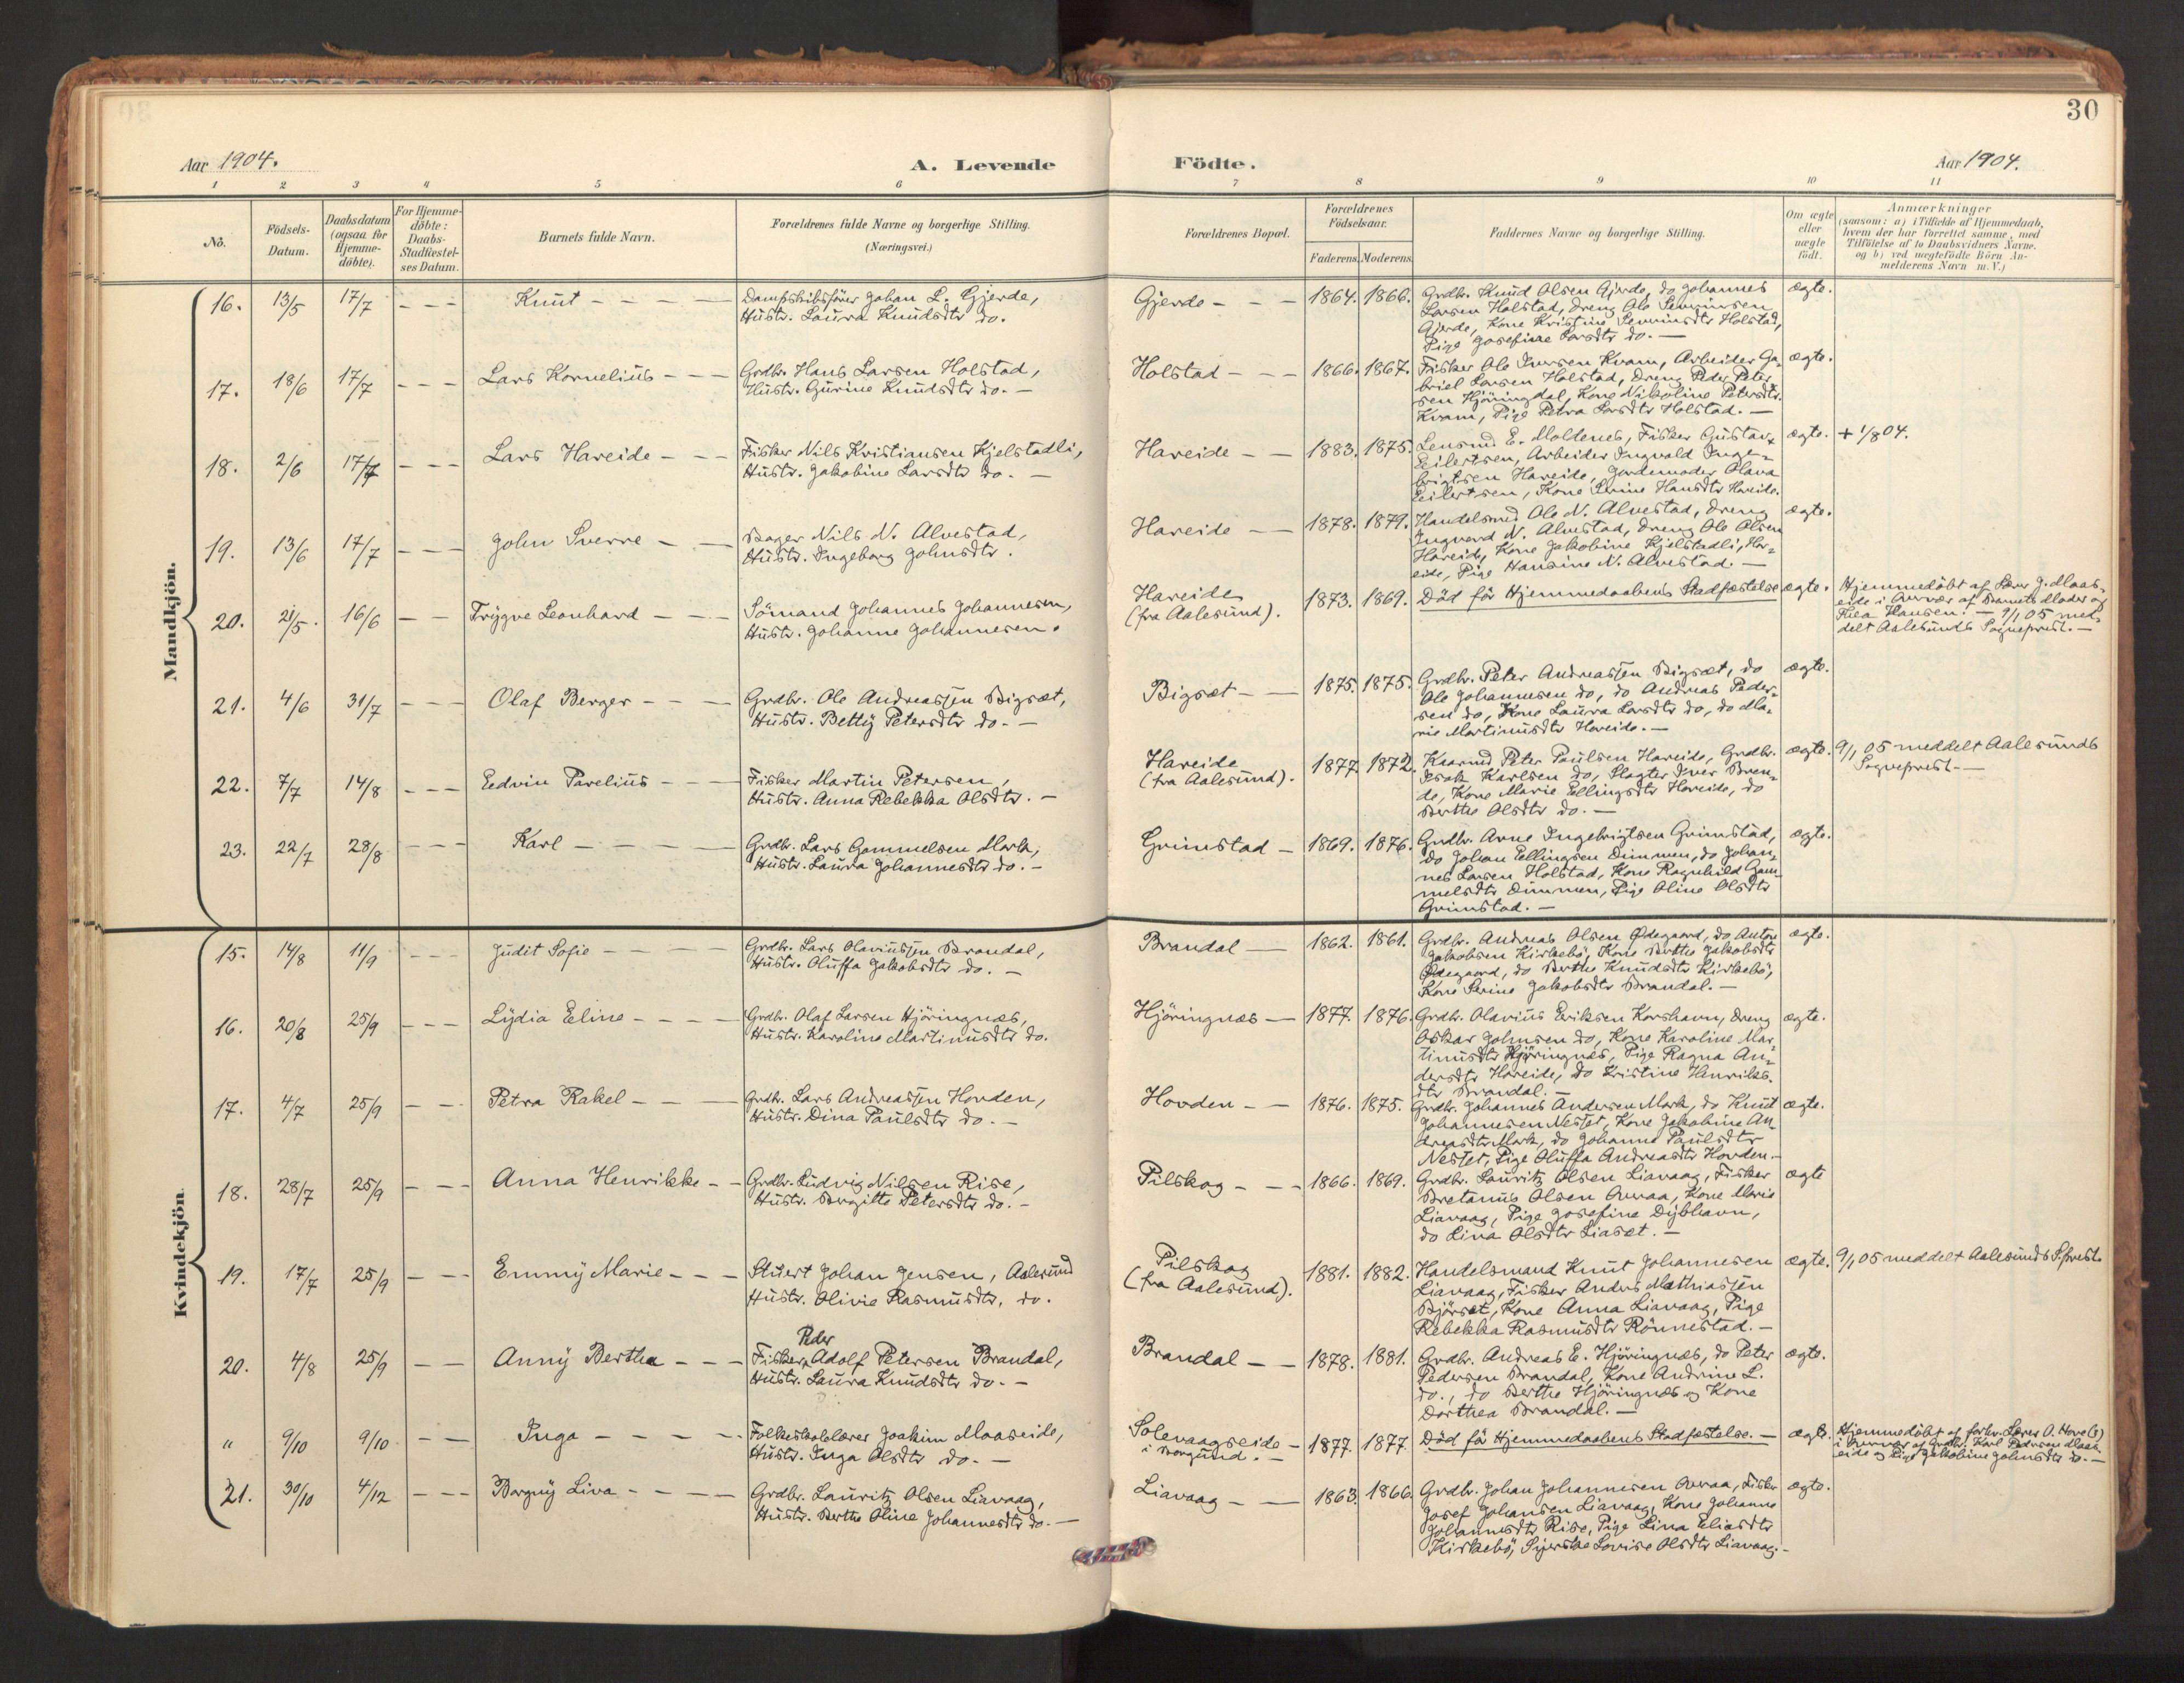 30
Aar 1904.
A. Levende Födte.
Aar 1904.
1 2 3 4 5 6 7 8 9 10 11
No.
Födsels-
Datum.
Daabsdatum
(ogsaa for
Hjemme-
döbte).
For Hjemme-
döbte:
Daabs-
Stadfæstel-
ses Datum.
Barnets fulde Navn.
Forældrenes fulde Navne og borgerlige Stilling.
(Næringsvei.)
Forældrenes Bopæl.
Forældrenes
Födselsaar.
Faderens. Moderens.
Faddernes Navne og borgerlige Stilling.
Om ægte
eller
uægte
födt.
Anmærkninger
(saasom: a) i Tilfælde af Hjemmedaab,
hvem der har forrettet samme, med
Tilföielse af to Daabsvidners Navne.
og b) ved uægtefödte Börn An-
melderens Navn m. V.)
Mandkjön.
16. 13/5 17/7 - - - Knut - - - - Dampskibsförer Johan L. Gjerde, Gjerde - - - 1864. 1866. Grdbr. Knud Olsen Gjerde, do Johannes ægte.
Hustr. Laura Knudsdtr do. Larsen Holstad, Dreng Ole Severinsen
Gjerde, Kone Kristine Severinsdtr Holstad,
Pige Josefine Larsdtr do. -
17. 18/6 17/7 - - - Lars Kornelius - - - Grdbr. Hans Larsen Holstad, Holstad - - - 1866. 1867. Fisker Ole Iversen Kvam, Arbeider Ga- ægte.
Hustr. Gurine Knudsdtr do. - briel Larsen Holstad, Dreng Peder Peter-
sen Hjöringdal, Kone Nikoline Petersdtr
Kvam, Pige Petra Larsdtr Holstad. -
18. 2/6 17/7 - - - Lars Hareide - - - Fisker Nils Kristiansen Kjelstadli, Hareide - - 1883. 1875. Lensmd E. Moldenes, Fisker Gustav ægte. + 1/8 04.
Hustr. Jakobine Larsdtr do. - Eilertsen, Arbeider Ingvald Inge-
brigtsen Hareide, Jordemoder Olava
Eilertsen, Kone Serine Hansdtr Hareide.
19. 13/6 17/7 - - - John Sverre - - Bager Nils N. Alvestad, Hareide - - 1878. 1879. Handelsmd Ole N. Alvestad, Dreng ægte.
Hustr. Ingeborg Johnsdtr. Ingvard N. Alvestad, Dreng Ole Olsen
Hareide, Kone Jakobine Kjelstadli, Har-
eide, Pige Hansine N. Alvestad. -
20. 21/5. 16/6 - - Trygve Leonhard - - - Sömand Johannes Johannesen, Hareide 1873. 1869. Död för Hjemmedaabens Stadfæstelse ægte. Hjemmedöbt af Lærer J. Maas-
Hustr. Johanne Johannesen. (fra Aalesund). eide i Nærvær af Barnets Moder og
Thea Hansen. - 9/1 05 med-
delt Aalesunds Sogneprest. -
21. 4/6 31/7 - - - Olaf Berger - - - Grdbr. Ole Andreassen Bigset, Bigset - - 1875. 1875. Grdbr. Peter Andreassen Bigset, do ægte.
Hustr. Betty Petersdtr do. - Ole Johannesen do, do Andreas Peder-
sen do, Kone Laura Larsdtr do, do Ma-
rie Martinusdtr Hareide. -
22. 7/7 14/8 - - - Edvin Parelius - - - Fisker Martin Petersen, Hareide 1877 1872. Kvarmd Peter Paulsen Hareide, Grdbr. ægte. 9/1 05 meddelt Aalesunds
Hustr. Anna Rebekka Olsdtr. - (fra Aalesund). Isak Karlsen do, Slagter Iver Bran- Sogneprest. -
de, Kone Marie Ellingsdtr Hareide, do
Berthe Olsdtr do. -
23. 22/7 28/8 - - - Karl - - - - Grdbr. Lars Gammelsen Mork, Grimstad - 1869. 1876. Grdbr. Arne Ingebrigtsen Grimstad, ægte.
Hustr. Laura Johannesdtr do. - do Johan Ellingsen Dimmen, do Johan-
nes Larsen Holstad, Kone Ragnhild Gam-
melsdtr Dimmen, Pige Oline Olsdtr
Grimstad. -
Kvindekjön.
15. 14/8 11/9 - - - Judit Sofie - - - Grdbr. Lars Olaviussen Brandal, Brandal - 1862. 1861. Grdbr. Andreas Olsen Ødegaard, do Anton ægte.
Hustr. Oluffa Jakobsdtr do. - Jakobsen Kirkebö, Kone Berthe Jakobsdtr
Ødegaard, do Berthe Knudsdtr Kirkebö,
Kone Serine Jakobsdtr Brandal. -
16. 20/8 25/9 - - - Lydia Eline - - - - Grdbr. Olaf Larsen Hjöringnæs, Hjöringnæs - 1877. 1876. Grdbr. Olavius Eriksen Korshavn, Dreng ægte.
Hustr. Karoline Martinusdtr do. Oskar Johnsen do, Kone Karoline Mar-
tinusdtr Hjöringnæs, Pige Ragna An-
dersdtr Hareide, do Kristine Henriks-
dtr Brandal. -
17. 4/7 25/9 - - - Petra Rakel - - - Grdbr. Lars Andreassen Hovden, Hovden - - 1876. 1875. Grdbr. Johannes Andersen Mork, do Knut ægte.
Hustr. Dina Paulsdtr do. - Johannesen Nesset, Kone Jakobine An-
dreasdtr Mork, do Johanne Paulsdtr
Nesset, Pige Oluffa Andreasdtr Hovden. -
18. 28/7 25/9 - - - Anna Henrikke - - Grdbr. Ludvig Nilsen Rise, Pilskog - - - 1866. 1869. Grdbr. Lauritz Olsen Liavaag, Fisker ægte
Hustr. Bergitte Petersdtr do. - Bretanus Olsen Overaa, Kone Marie
Liavaag, Pige Josefine Dybhavn,
do Lina Olsdtr Liaset. -
19. 17/7 25/9 - - - Emmy Marie - - - Stuert Johan Jensen, Aalesund Pilskog 1881. 1882. Handelsmand Knut Johannesen ægte. 9/1 05 meddelt Aalesunds S.prest.
Hustr. Olivie Rasmusdtr, do. (fra Aalesund). Liavaag, Fisker Anders Mathiassen
Björset, Kone Anna Liavaag, Pige
Rebekka Rasmusdtr Rönnestad. -
Peder
20. 4/8 25/9 - - Anny Bertha - - - Fisker Adolf Petersen Brandal, Brandal - - 1878. 1881. Grdbr. Andreas E. Hjöringnæs, do Peter ægte.
Hustr. Laura Knudsdtr do. - Pedersen Brandal, Kone Andrine L.
do., do Berthe Hjöringnæs og Kone
Dorthea Brandal. -
" 9/10 9/10 - - Inga - - - - Folkeskolelærer Joakim Maaseide, Solevaagseide - 1877. 1877. Död för Hjemmedaabens Stadfæstelse. - ægte. Hjemmedöbt af forhv. Lærer O. Hove(?)
Hustr. Inga Olsdtr do. - i Borgund. - i Nærvær af Grdbr. Karl Pedersen Maas-
eide og Pige Jakobine Johnsdtr do. -
21. 30/10 4/12 - - - Borgny Liva - - - - Grdbr. Lauritz Olsen Liavaag, Liavaag - - 1863. 1866. Grdbr. Johan Johannesen Overaa, Fisker ægte.
Hustr. Berthe Oline Johannesdtr do. - Josef Johansen Liavaag, Kone Johanne
Johannesdtr Rise, Pige Lina Eliasdtr
Kirkebö, Syerske Lovise Olsdtr Liavaag. -